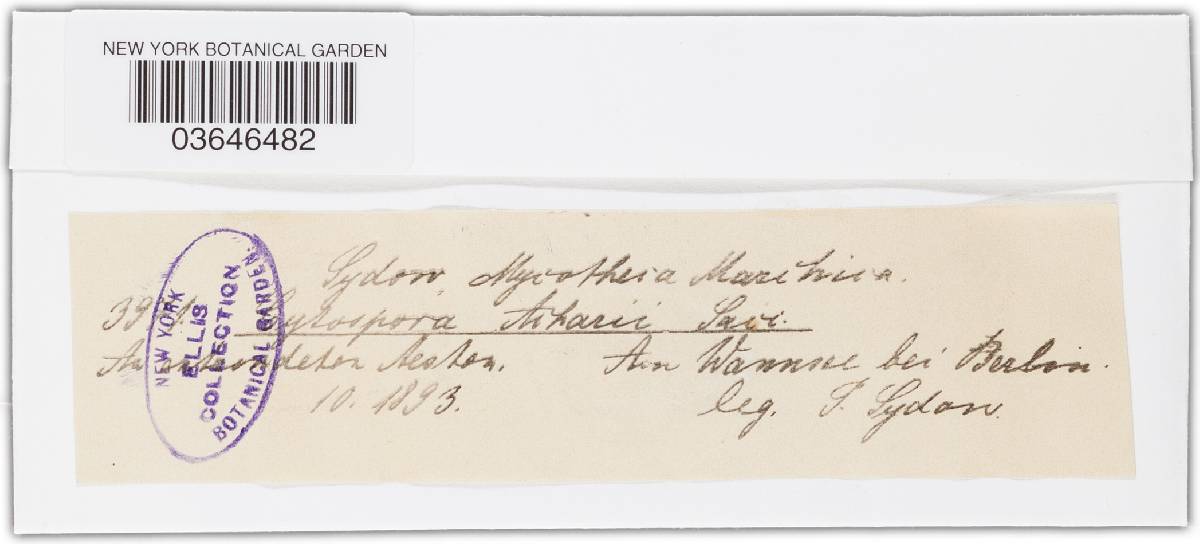 NEW YORK BOTANICAL GARDEN
03646482
Sydow, Mycotheca Marchica.
Cytospora Acharii Sacc.
Aesten. Am Wannsee bei Berlin.
10. 1893. leg. P. Sydow.
NEW YORK
ELLIS
COLLECTION
BOTANICAL GARDEN.